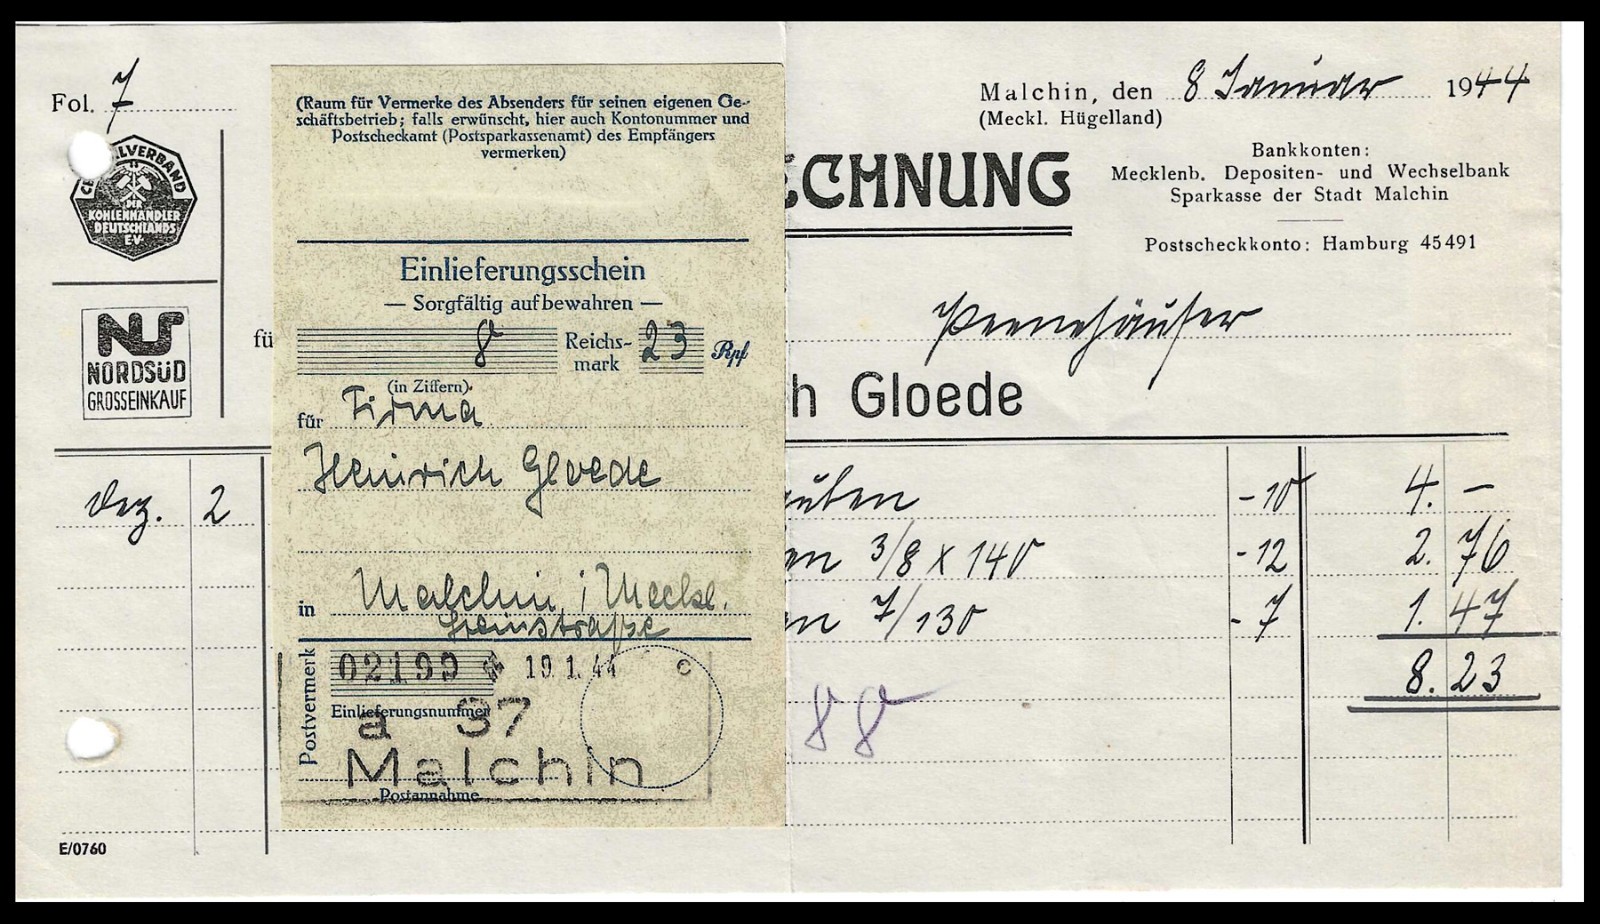 Fol. 7
CE ALVERBAND
DER
KOHLENHÄNDLER
DEUTSCHLANDS
E.V.
NS
NORDSÜD
GROSSEINKAUF
(Raum für Vermerke des Absenders für seinen eigenen Ge-
schäftsbetrieb; falls erwünscht, hier auch Kontonummer und
Postscheckamt (Postsparkassenamt) des Empfängers
vermerken)
Einlieferungsschein
— Sorgfältig aufbewahren —
8 Reichs-
mark 23 Rpf
(in Ziffern)
für Firma
Heinrich Gloede
in Malchin i/Meckl.
Steinstraße
Postvermerk
02199 * 19.1.44 c
Einlieferungsnummer
a 37
Malchin
Postannahme
Malchin, den 8 Januar 1944
(Meckl. Hügelland)
ECHNUNG
Bankkonten:
Mecklenb. Depositen- und Wechselbank
Sparkasse der Stadt Malchin
Postscheckkonto: Hamburg 45491
fü Peenehäuser
h Gloede
Dez. 2 auben -10 4. –
en 3/8 x 140 -12 2. 76
en 7/130 -7 1. 47
8. 23
88
E/0760